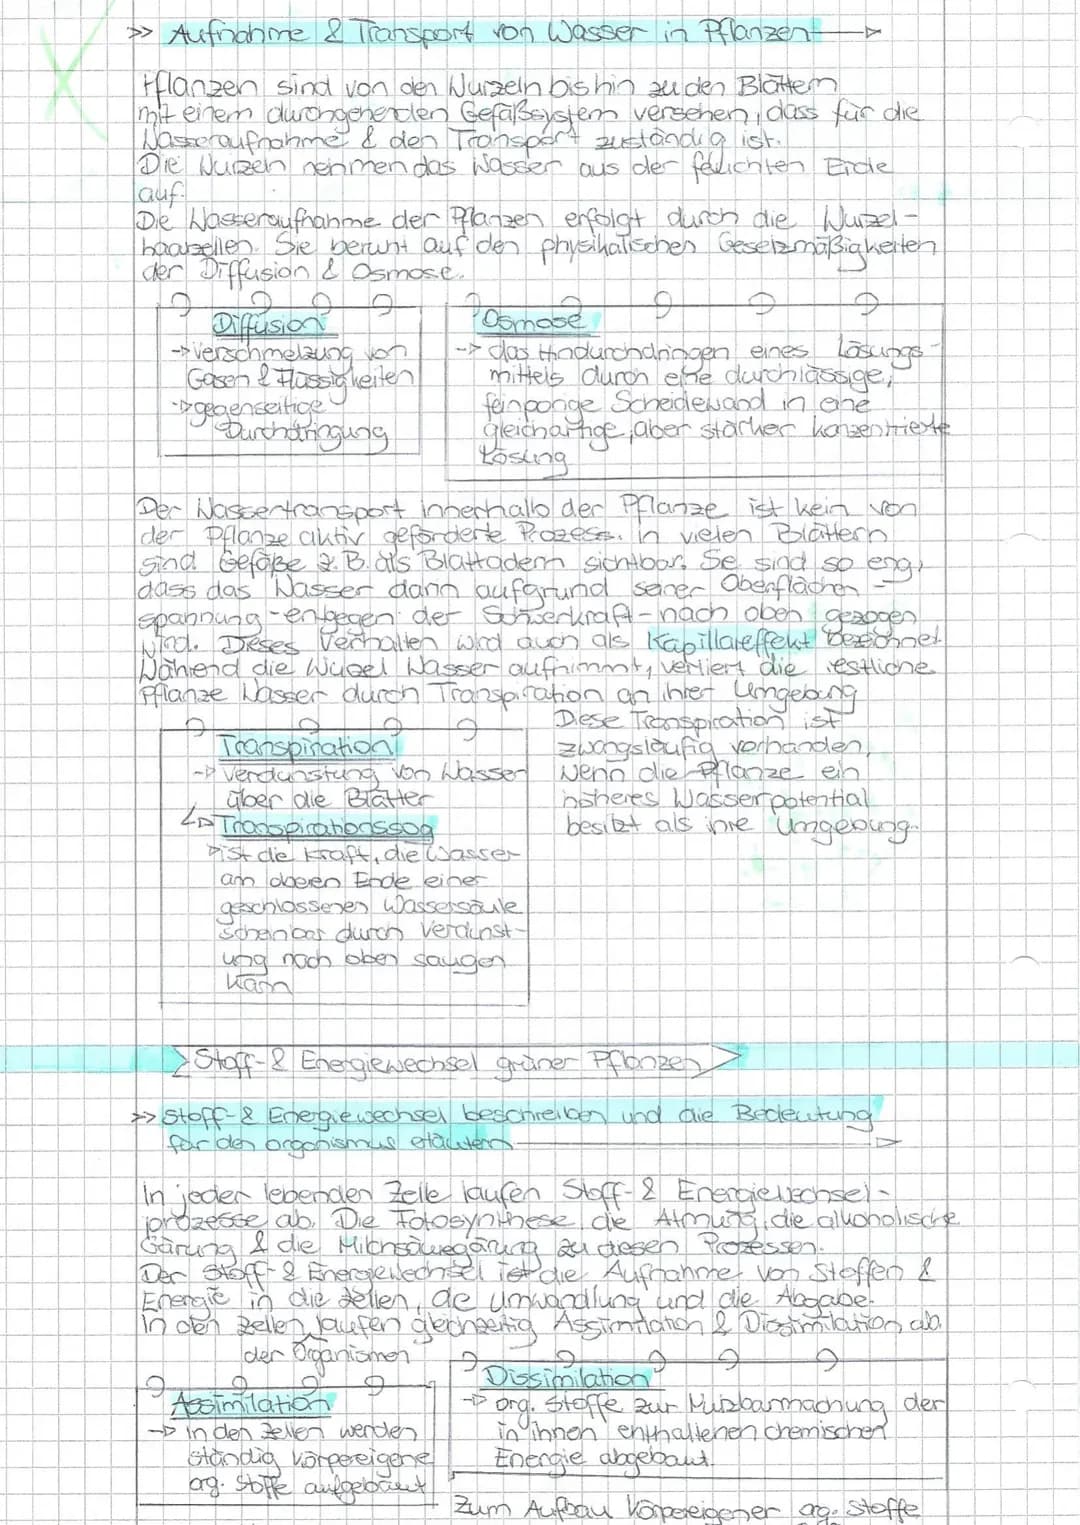 >> Aufnahme & Transport von Wasser in Pflanzen
Pflanzen sind von den Wurzeln bis hin zu den Blättern
mit einem durchgehenden Gefäßsystem versehen, dass für die
Wasseraufnahme & den Transport zuständig ist.
Die Wurzeln nehmen das Wasser aus der feuchten Erde
auf.
Die Wasseraufnahme der Pflanzen erfolgt durch die Wurzel-
haarzellen. Sie beruht auf den physikalischen Gesetzmäßigkeiten
der Diffusion & Osmose.
Diffusion
-> Verschmelzung von
Gasen & Flüssigkeiten
-> gegenseitige
Durchdringung
Osmose
-> das Hindurchdringen eines Lösungs-
mittels durch eine durchlässige,
feinporige Scheidewand in eine
gleichartige, aber stärker konzentrierte
Lösung
Der Wassertransport innerhalb der Pflanze ist kein von
der Pflanze aktiv geförderte Prozess. In vielen Blättern
sind Gefäße z.B. als Blattadern sichtbar. Sie sind so eng,
dass das Wasser dann aufgrund seiner Oberflächen-
spannung - entgegen der Schwerkraft - nach oben gezogen
wird. Dieses Verhalten wird auch als Kapillareffekt bezeichnet.
Während die Wurzel Wasser aufnimmt, verliert die restliche
Pflanze Wasser durch Transpiration an ihrer Umgebung
Diese Transpiration ist
zwangsläufig vorhanden,
wenn die Pflanze ein
höheres Wasserpotential
besitzt als ihre Umgebung.
Transpiration
-> Verdunstung von Wasser
über die Blätter
-> Transpirationssog
-> ist die Kraft, die Wasser
am oberen Ende einer
geschlossenen Wassersäule
scheinbar durch Verdunst-
ung nach oben saugen
kann
Stoff- & Energiewechsel grüner Pflanzen
>> Stoff- & Energiewechsel beschreiben und die Bedeutung
für den Organismus erläutern
In jeder lebenden Zelle laufen Stoff- & Energiewechsel-
prozesse ab. Die Fotosynthese, die Atmung, die alkoholische
Gärung & die Milchsäuregärung zu diesen Prozessen.
Der Stoff- & Energiewechsel ist die Aufnahme von Stoffen &
Energie in die Zellen, die Umwandlung und die Abgabe.
In den Zellen laufen gleichzeitig Assimilation & Dissimilation ab.
der Organismen
Assimilation
-> in den Zellen werden
ständig körpereigene
org. Stoffe aufgebaut
Dissimilation
-> org. Stoffe zur Nutzbarmachung der
in ihnen enthaltenen chemischen
Energie abgebaut.
Zum Aufbau körpereigener org. Stoffe